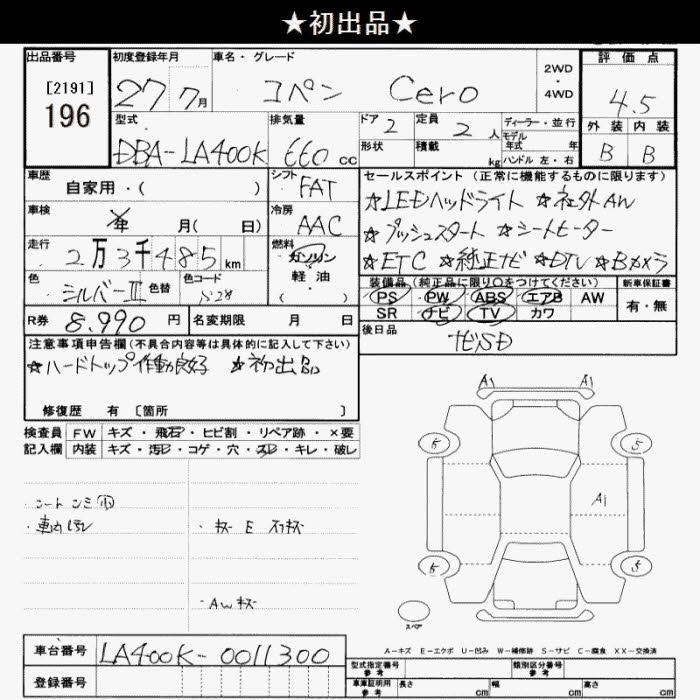 ★初出品★
出品番号
[2191]
196
初度登録年月
27 7月
車名・グレード
コペン Cero
2WD
・
4WD
評価点
4.5
外装 内装
B B
型式
DBA-LA400K
排気量
660 cc
ドア 2
定員 2 人
形状
積載 kg
ディーラー・並行
モデル
年式 年
ハンドル 左・右
車歴
自家用・( )
シフト
FAT
車検
年 月( 日)
冷房
AAC
走行
2万3千485km
燃料
ガソリン
軽・油
( )
色
シルバーIII
色替
色コード
S28
R券 8.990 円
名変期限 月 日
セールスポイント(正常に機能するものに限ります)
★LEDヘッドライト ★社外AW
★プッシュスタート ★シートヒーター
★ETC ★純正ナビ ★DTV ★Bカメラ
装備品(純正品に限り○をつけてください)
PS PW ABS エアB AW
SR ナビ TV カワ
新車保証書
有・無
後日品
ナビSD
注意事項申告欄(不具合内容等は具体的に記入して下さい)
★ハードトップ作動良好 ★初出品
修復歴 有 [箇所 ]
検査員 FW キズ・飛石・ヒビ割・リペア跡・×要
記入欄 内装 キズ・汚レ・コゲ・穴・スレ・キレ・破レ
・シートシミ小
・車内汚レ
・キズ E スリキズ
・AWキズ
A1 A1
5 5
A1
5 5
スペア
A-キズ E-エクボ U-凹み W-補修跡 S-サビ C-腐食 XX-交換済
車台番号 LA400K-0011300
登録番号
型式指定番号
参考
類別区分番号
参考
車庫証明用
参考
長さ cm 幅 cm 高さ cm